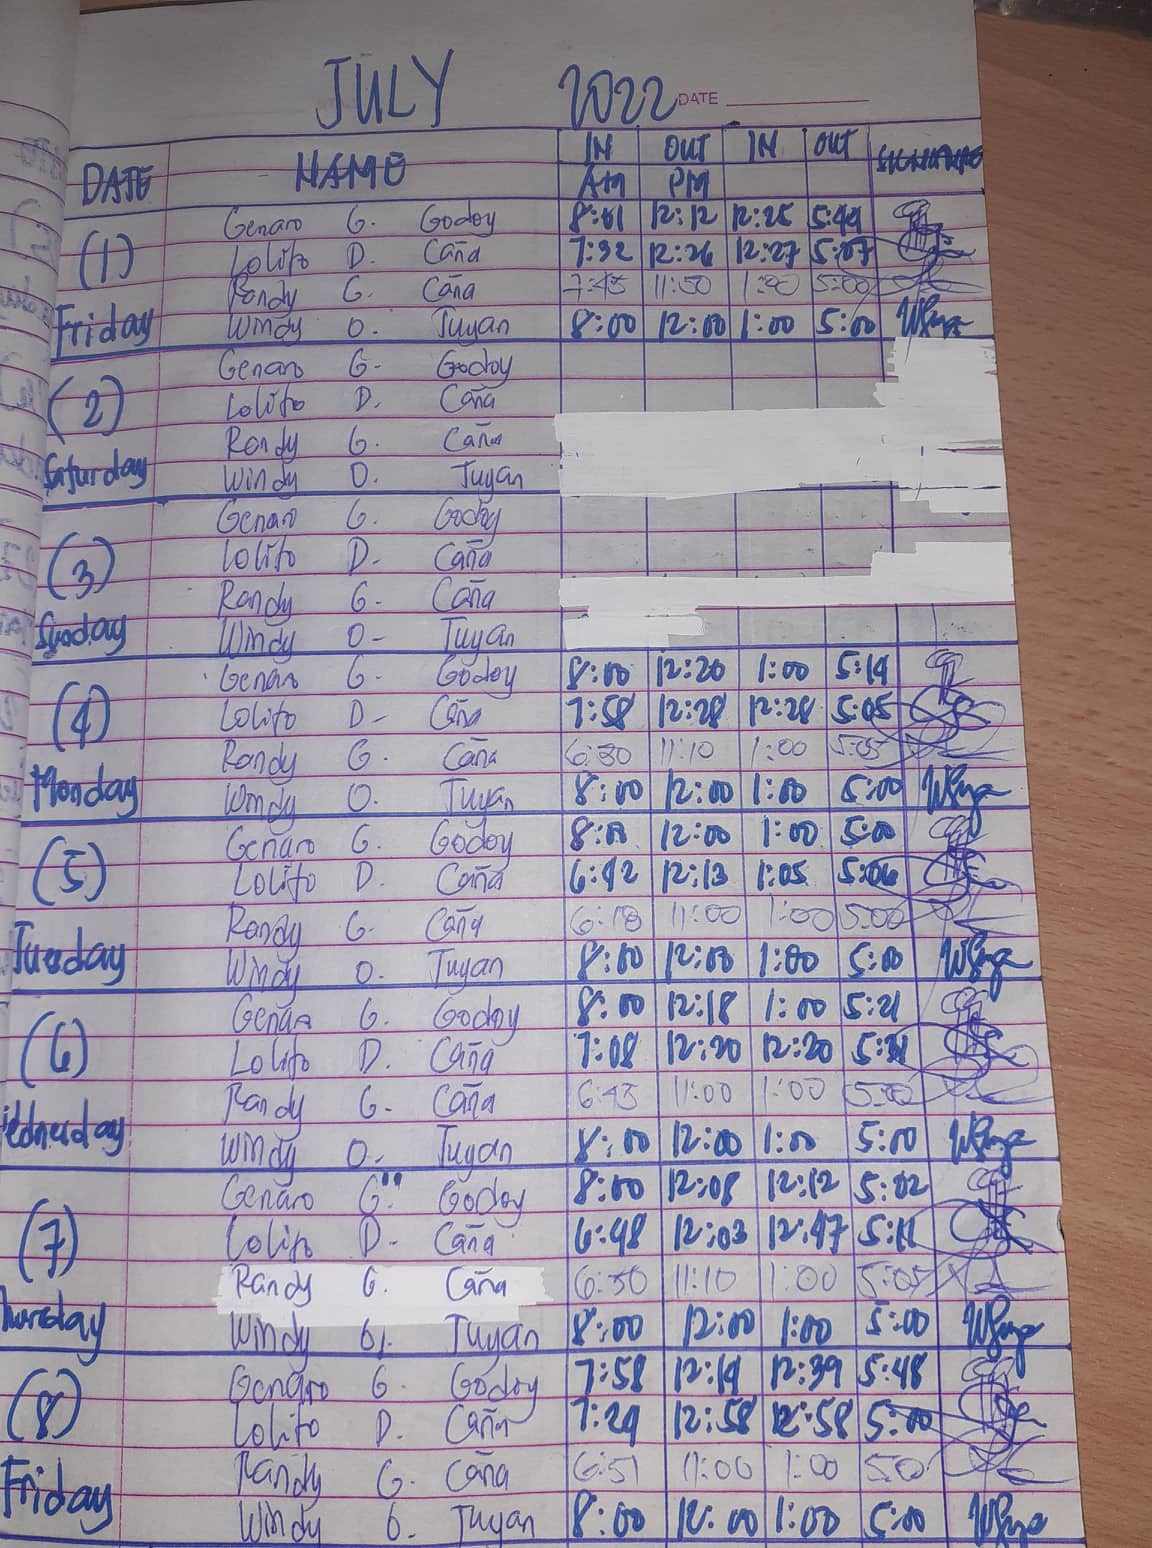 JULY 2022 DATE
DATE NAME IN OUT IN OUT SIGNATURE
AM PM
(1) Friday
Genaro G. Godoy 8:01 12:12 12:25 5:49
Lolito D. Caña 7:32 12:26 12:27 5:07
Randy G. Caña 7:45 11:50 1:00 5:00
Windy O. Tuyan 8:00 12:00 1:00 5:00
(2) Saturday
Genaro G. Godoy
Lolito D. Caña
Randy G. Caña
Windy O. Tuyan
(3) Sunday
Genaro G. Godoy
Lolito D. Caña
Randy G. Caña
Windy O- Tuyan
(4) Monday
Genaro G- Godoy 8:00 12:20 1:00 5:19
Lolito D- Caña 7:58 12:28 12:28 5:05
Randy G. Caña 6:30 11:10 1:00 5:05
Windy O. Tuyan 8:00 12:00 1:00 5:00
(5) Tuesday
Genaro G. Godoy 8:00 12:00 1:00 5:00
Lolito D. Caña 6:42 12:13 1:05 5:06
Randy G. Caña 6:18 11:00 1:00 5:00
Windy O. Tuyan 8:00 12:00 1:00 5:00
(6)
Genaro G. Godoy 8:00 12:18 1:00 5:21
Lolito D. Caña 7:08 12:20 12:20
Randy G- Caña 6:43 11:00 1:00 5:00
Windy O. Tuyan 8:00 12:00 1:00 5:00
(7)
Genaro G. Godoy 8:00 12:08 12:12 5:02
Lolito D- Caña 6:48 12:03 12:47 5:11
Randy G. Caña 6:30 11:10 1:00 5:05
Windy Tuyan 8:00 12:00 1:00 5:00
(8) Friday
Genaro G. Godoy 7:58 12:19 12:39 5:48
Lolito D. Caña 7:29 12:58 12:58 5:00
Randy G. Caña 6:51 11:00 1:00
Windy Tuyan 8:00 12:00 1:00 5:00